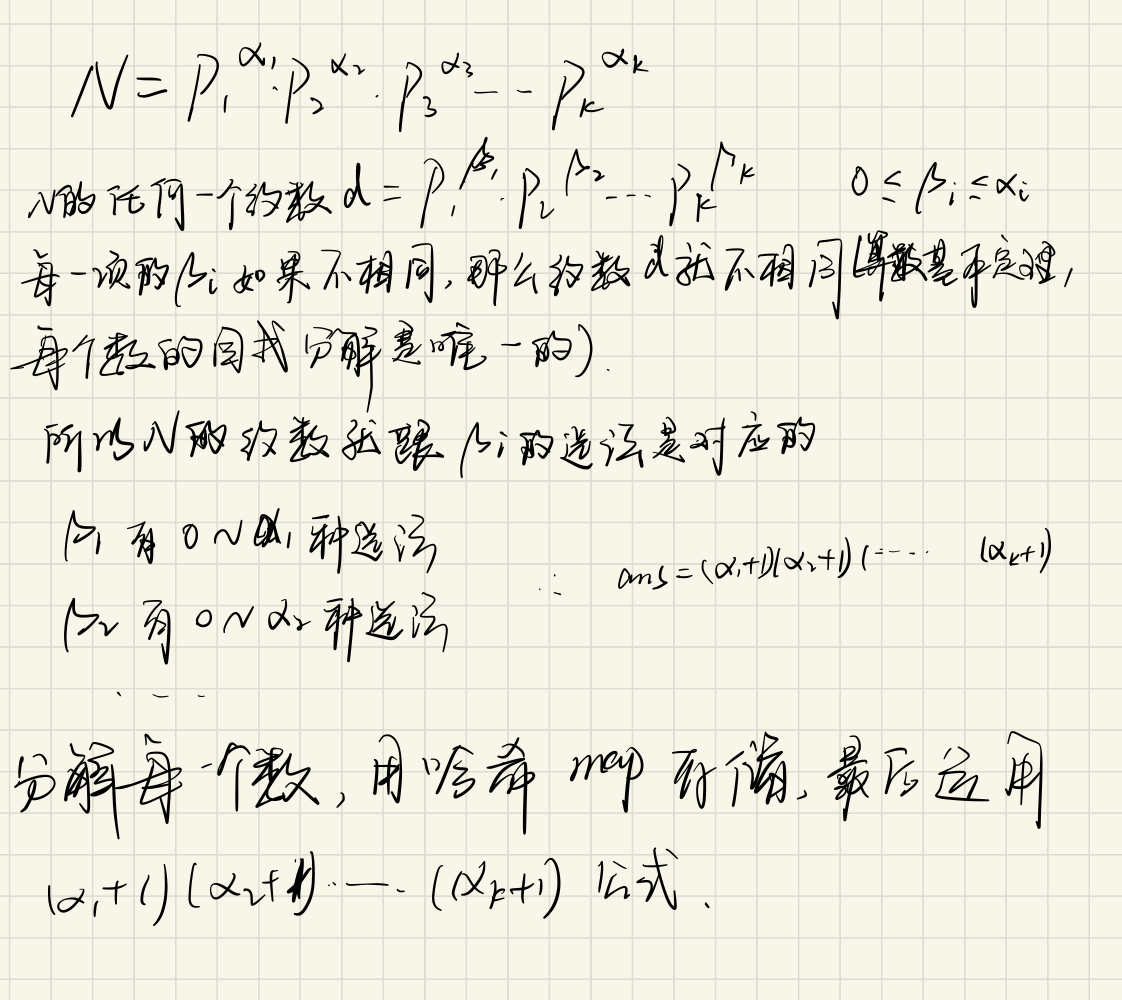 N = P₁^α₁ · P₂^α₂ · P₃^α₃ -- - P_k^α_k
N的任何一个约数 d = P₁^β₁ · P₂^β₂ --- P_k^β_k 0 ≤ βi ≤ αi
每一项的βi如果不相同,那么约数d就不相同(算数基本定理,
每个数的因式分解是唯一的).
所以N的约数就跟βi的选法是对应的
β₁有0~α₁种选法
∴ ans = (α₁+1)(α₂+1)(····· (α_k+1)
β₂有0~α₂种选法
· - -
分解每一个数,用哈希map存储,最后运用
(α₁+1)(α₂+1)·—·(α_k+1) 公式.